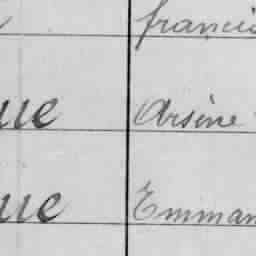 franci
ue Arsène
ue Emman